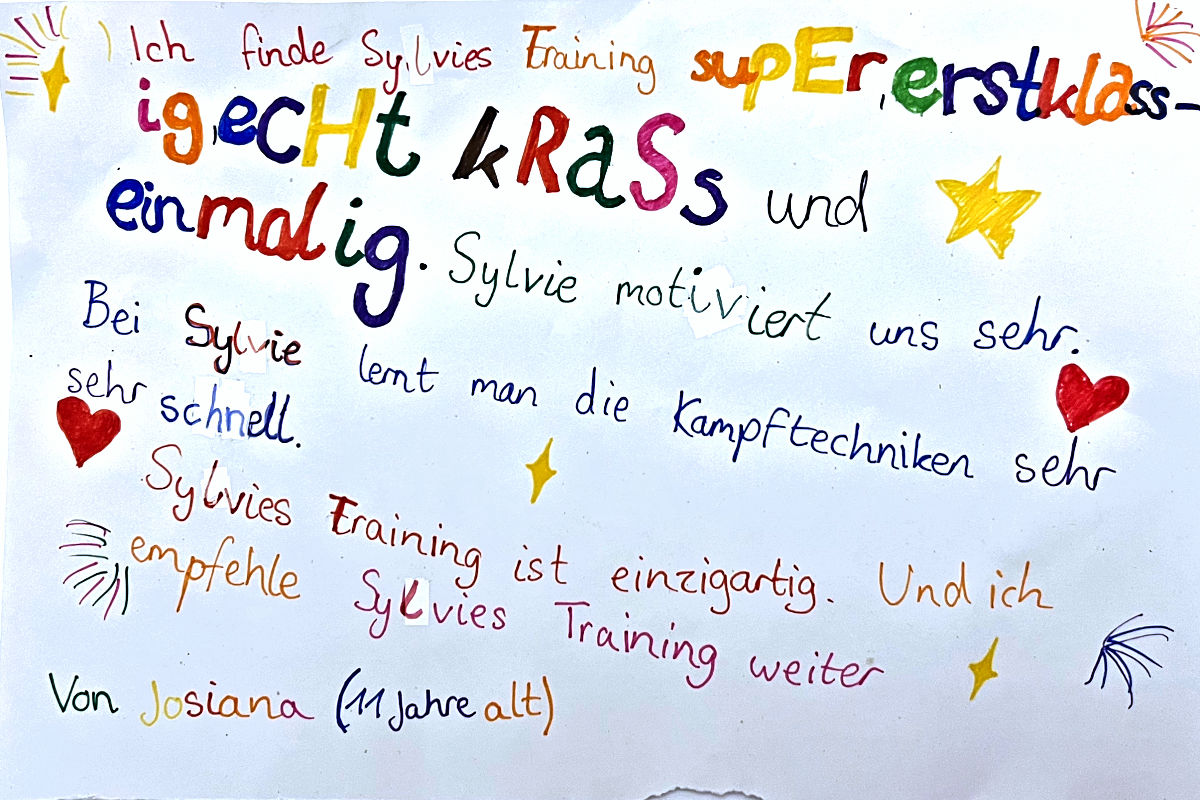 Ich finde Sylvies Training supEr, erstklass-
ig, ecHt kRaSs und
einmalig. Sylvie motiviert uns sehr.
Bei Sylvie lernt man die Kampftechniken sehr
sehr schnell.
Sylvies Training ist einzigartig. Und ich
empfehle Sylvies Training weiter
Von Josiana (11 Jahre alt)